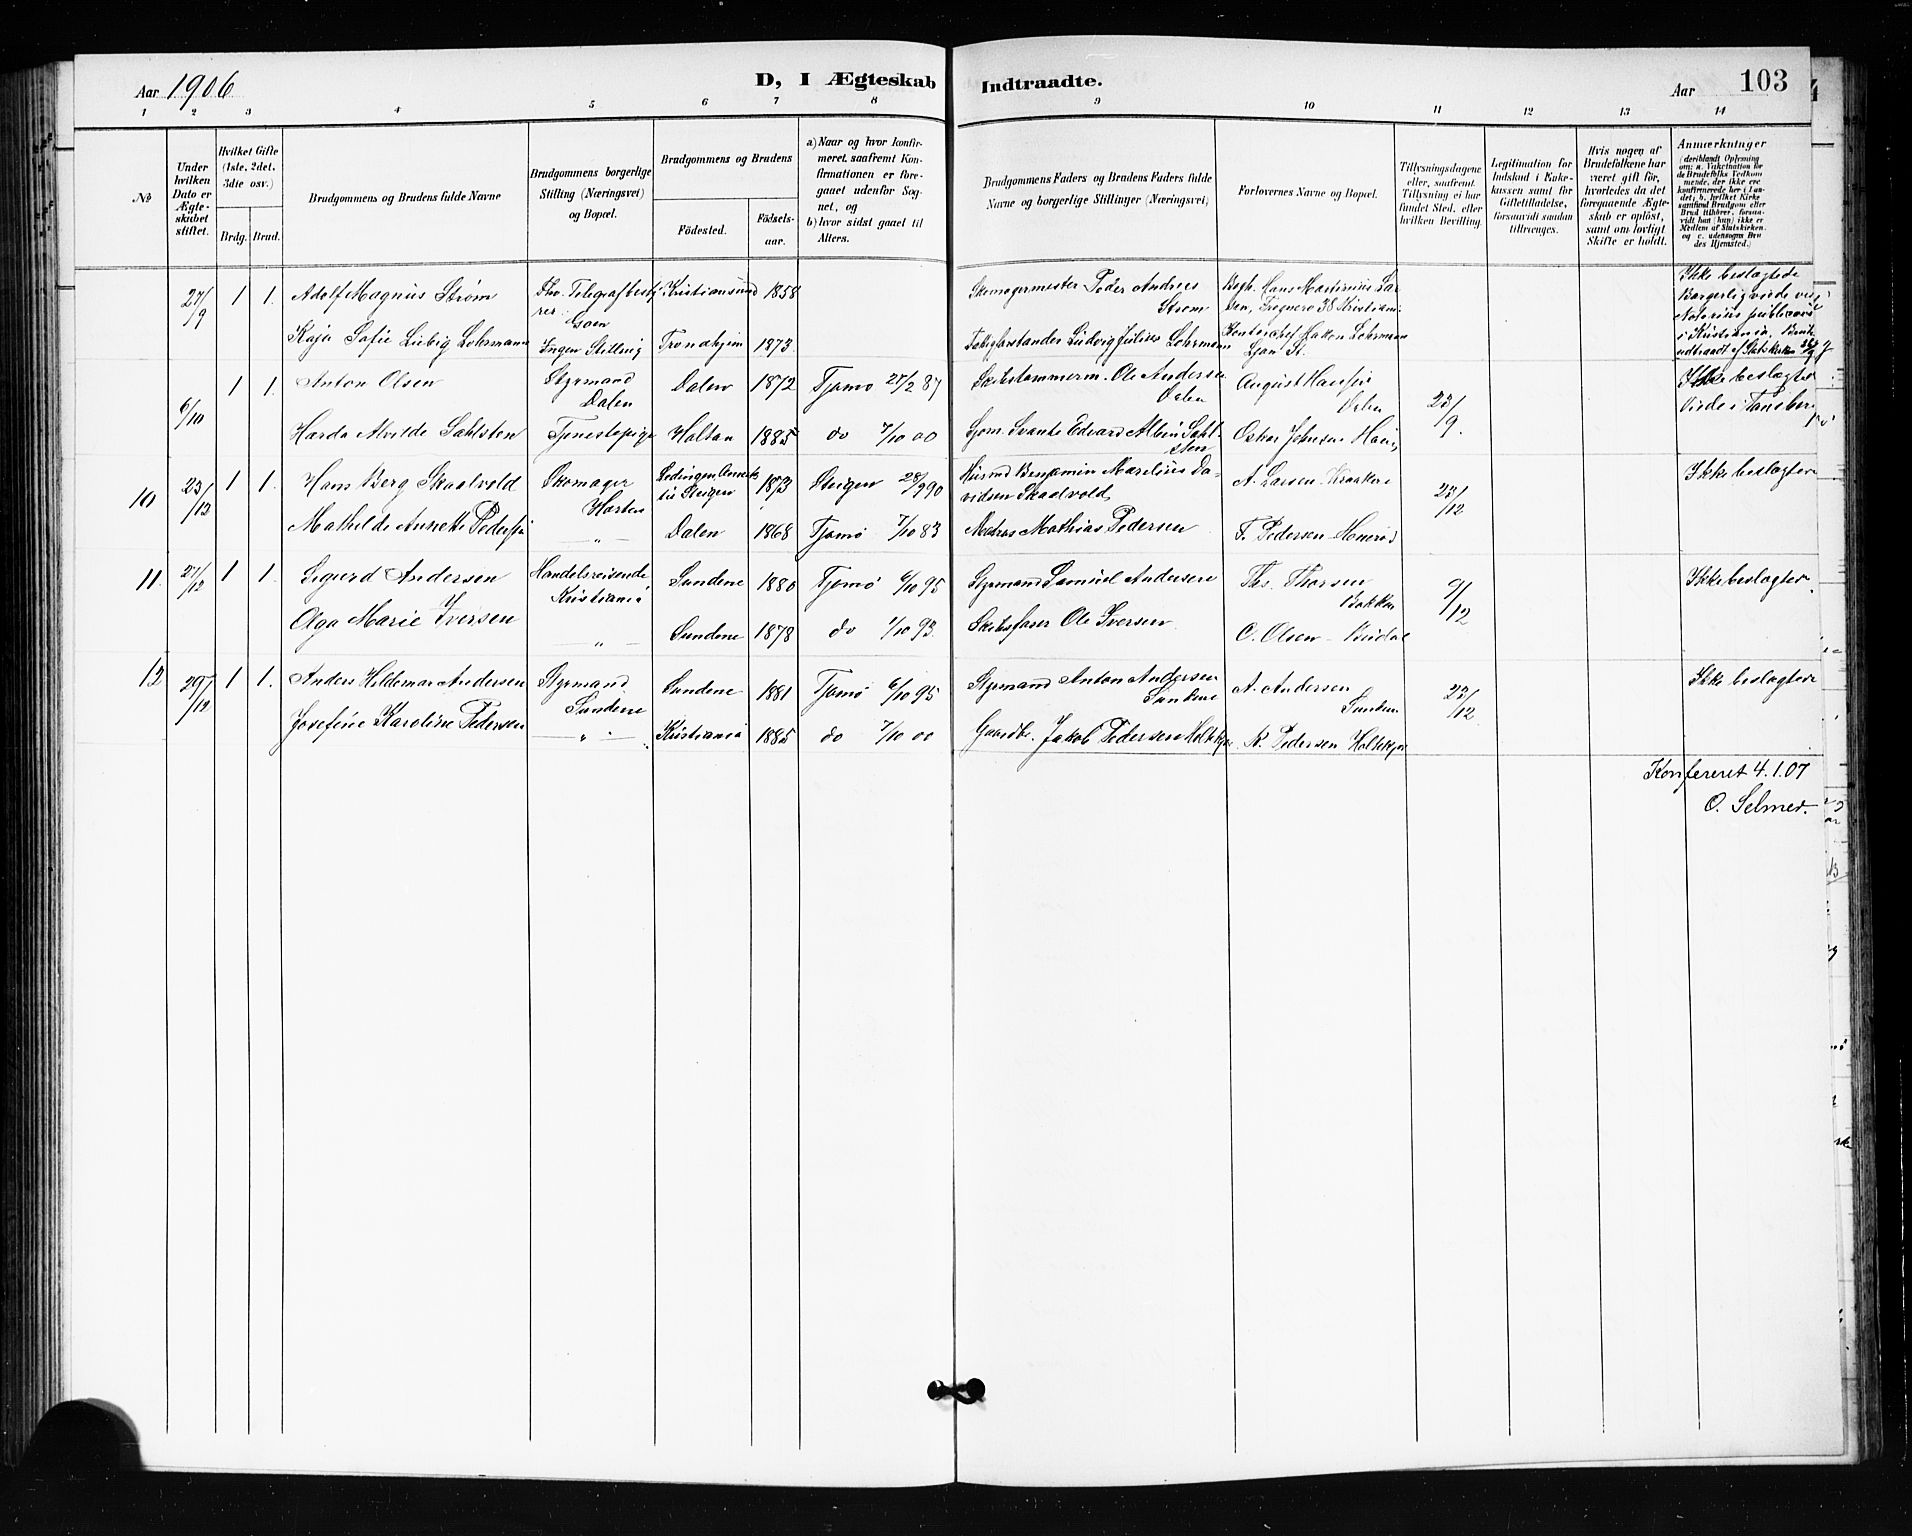 Aar 1906
D, I Ægteskab Indtraadte.
Aar
103
1 2 3 4 5 6 7 8 9 10 11 12 13 14
No
Under hvilken Dato er Ægteskabet stiftet.
Hvilket Gifte (1ste, 2det, 3die osv.)
Brdg. Brud.
Brudgommens og Brudens fulde Navne
Brudgommens borgerlige Stilling (Næringsvei) og Bopæl.
Brudgommens og Brudens
Födested.
Födsels-aar.
a) Naar og hvor konfirmeret, saafremt Konfirmationen er foregaaet udenfor Sognet, og
b) hvor sidst gaaet til Alters.
Brudgommens Faders og Brudens Faders fulde Navne og borgerlige Stillinger (Næringsvei)
Forlovernes Navne og Bopæl.
Tillysningsdagene eller, saafremt Tillysning ei har fundet Sted, efter hvilken Bevilling.
Legitimation for Indskud i Enkekassen samt for Giftetilladelse, forsaavidt saadan tiltrænges.
Hvis nogen af Brudefolkene har været gift før, hvorledes da det foregaaende Ægteskab er oplöst, samt om lovligt Skifte er holdt.
Anmerkninger
(deriblandt Oplysning om: a. Vakcination for de Brudefolks Vedkommende, der ikke ere konfirmerede her i Landet; b. hvilket Kirkesamfund Brudgom eller Brud tilhörer, forsaavidt han (hun) ikke er Medlem af Statskirken, og c. udensogns Brudes Hjemsted.
27/9 1 1. Adolf Magnus Strøm
Kristiansund 1858
Skomagermester Peder Andreas Strøm
Hans Martinius
Ikke beslægtede
Borgerlig viede
Notarius publicus
i Kristiania
Kaja Sofie Liebig Lohrmann
Ingen Stilling Trondhjem 1873
Ludvig Julius Lohrmann
Kontorchef Hakon Lohrmann
Ljan St.
6/10 1 1. Anton Olsen
Styrmand
Dalen
Dalen 1872 Tjømø 27/2 87
Skibstømmerm. Ole Andersen
Dalen
August Hansen
Dalen
23/9.
Ikke beslægtede
Viede i Tønsberg
Harda Alvilde Sahlsten
Tjenestepige Holtan 1885 do 7/10 00
Sjøm. Svante Edvard Albin Sahlsten
Oskar Johnsen
10 23/12 1 1. Hans Berg Skaalvold
Skomager
Horten
1873 Steigen 28/9 90
Benjamin Marelius Davidsen Skaalvold
A. Larsen Kraakere
23/12
Ikke beslægtede
Mathilde Annette Pedersen
" Dalen 1868 Tjømø 7/10 83
Matros Mathias Pedersen
F. Pedersen
11. 27/12 1 1. Sigurd Andersen
Handelsreisende
Kristiania
Sundene 1880 Tjømø 6/10 95
Styrmand Samuel Andersen
Ths. Thorsen
Bakken
9/12
Ikke beslægtede
Olga Marie Iversen
" Sundene 1878 do 1/10 93.
Skibsfører Ole Iversen
C. Olsen
12 29/12 1 1. Anders Hildemar Andersen
Styrmand
Sundene
Sundene 1881 Tjømø 6/10 95
Styrmand Anton Andersen
Sundene
A. Andersen
Sundene
23/12
Ikke beslægtede
Josefine Karoline Pedersen
" Kristiania 1885 do 7/10 00
Gaardbr. Jakob Pedersen
K. Pedersen
Konfereret 4.1.07
O. Selmer.